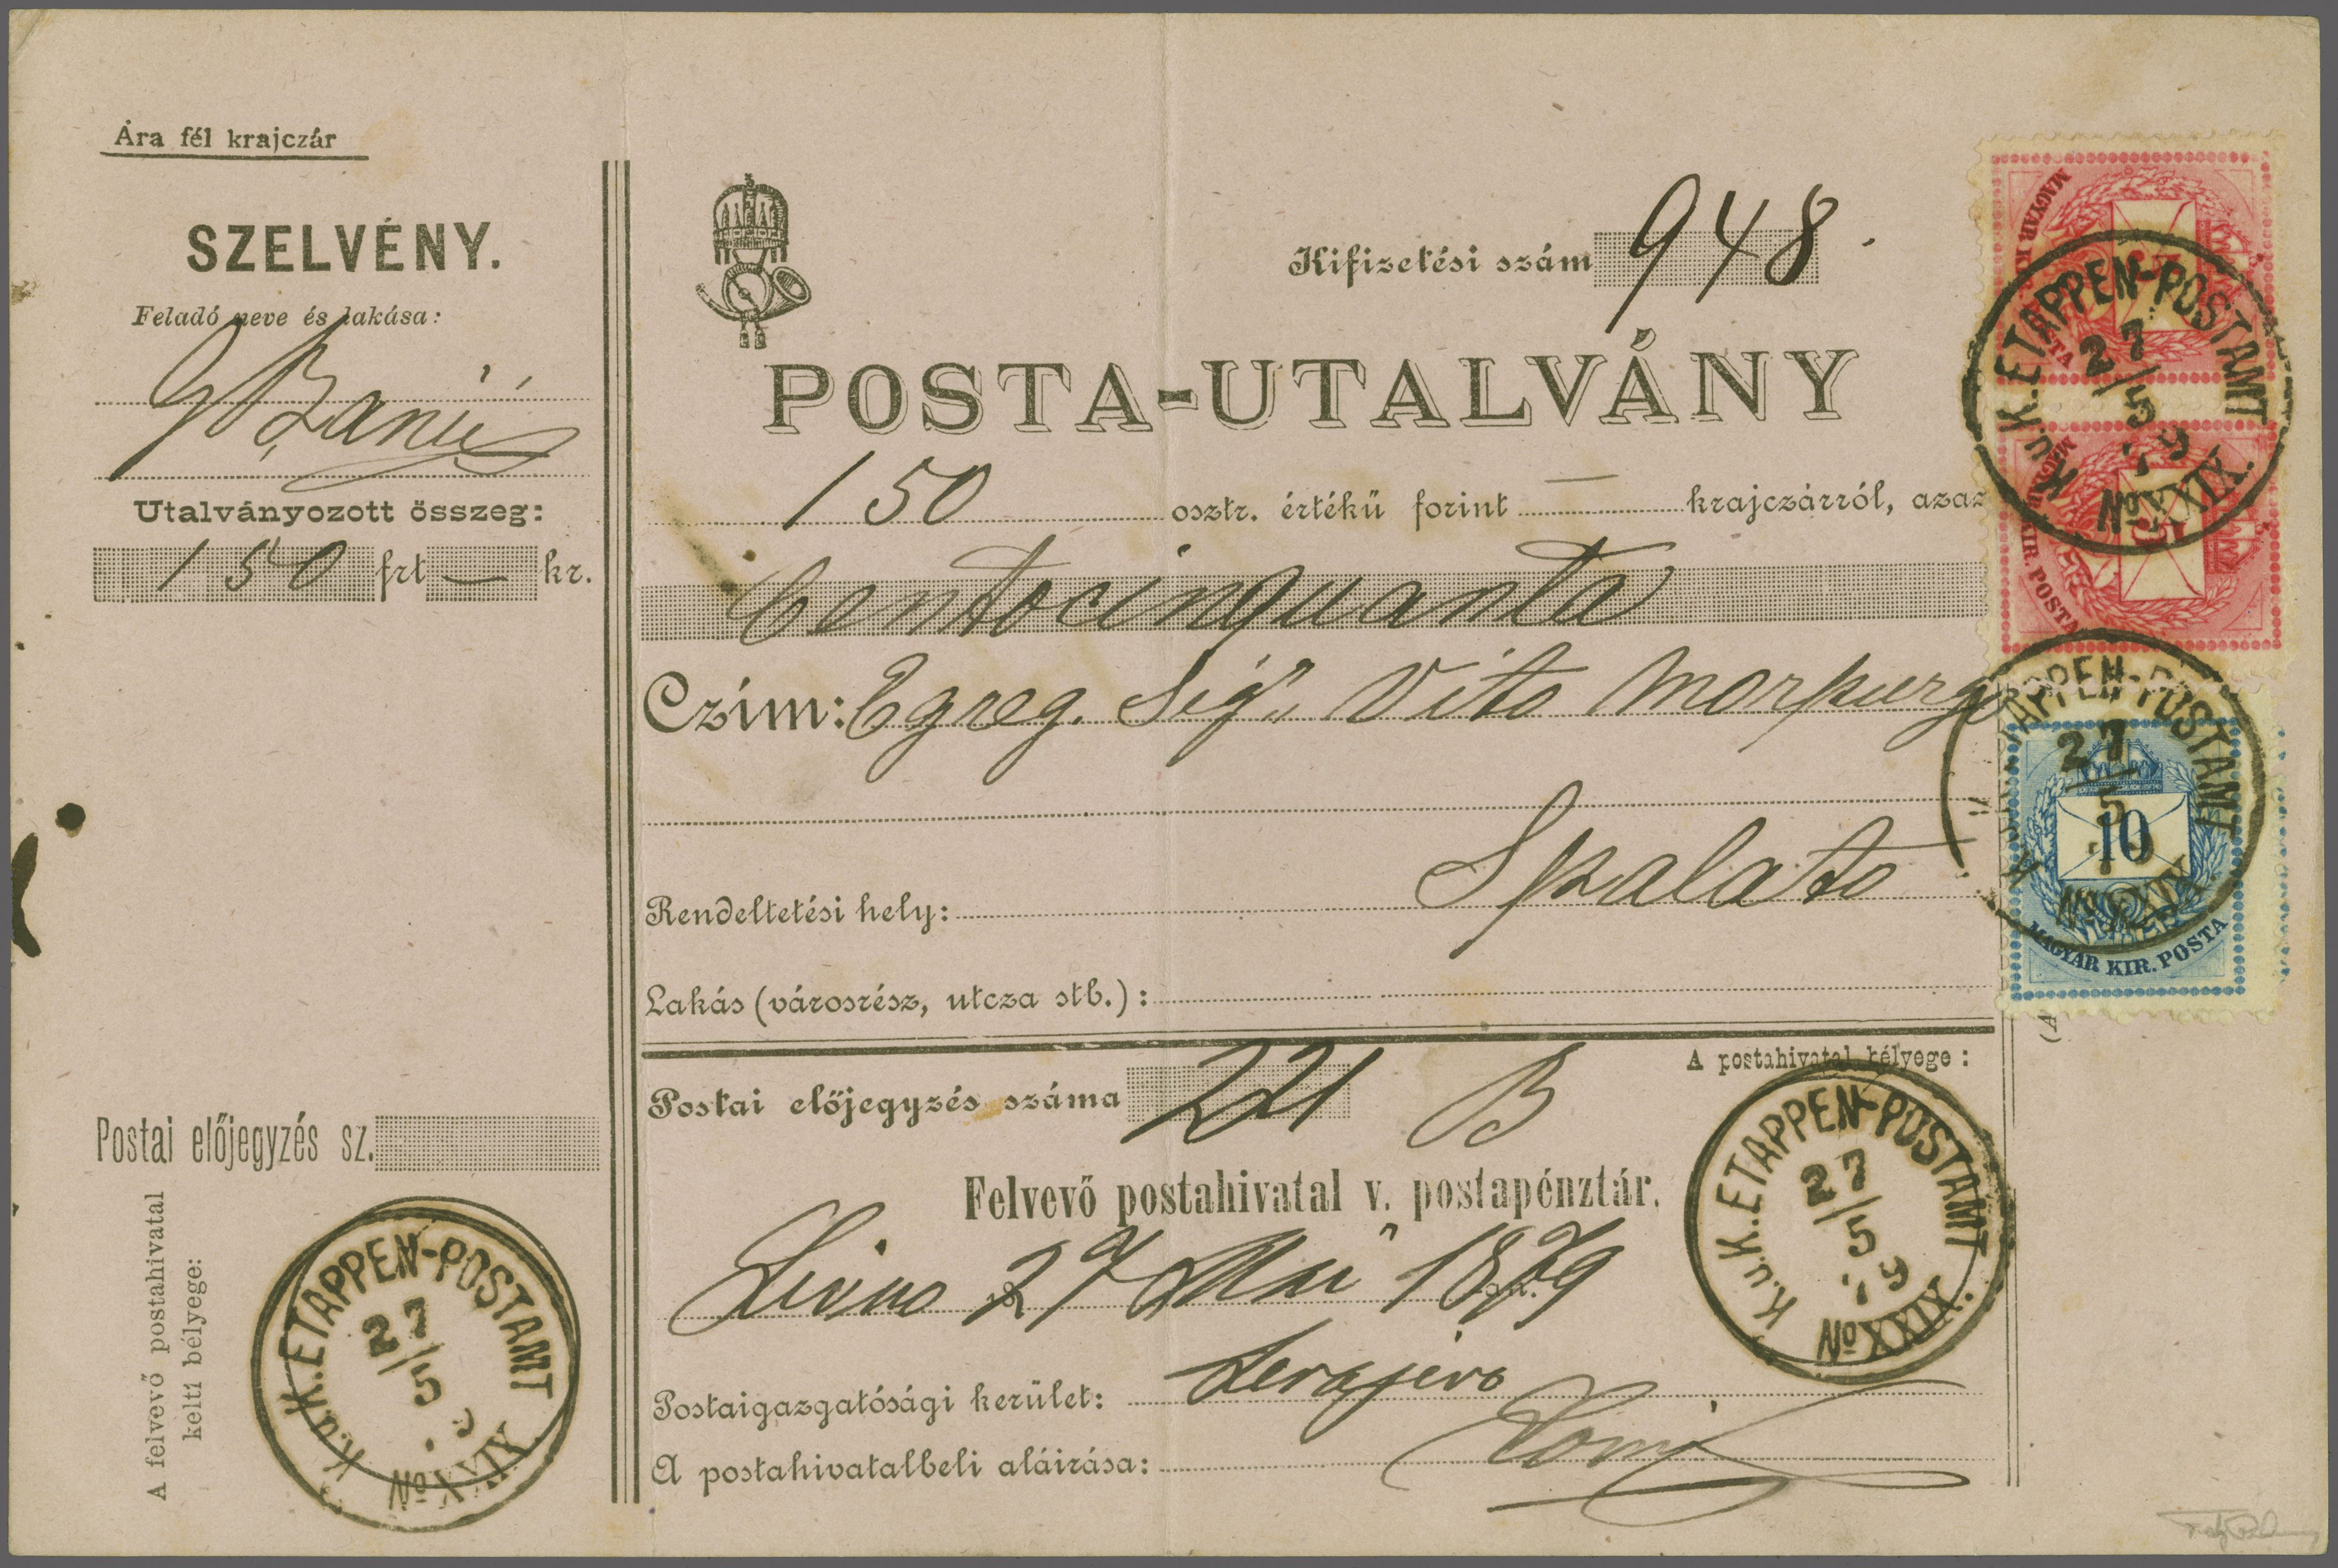 Ára fél krajczár
SZELVÉNY.
Feladó neve és lakása:
Utalványozott összeg:
150 frt — kr.
Postai előjegyzés sz.
A felvevő postahivatal
kelti bélyege:
K.u.K. ETAPPEN-POSTAMT
27/5 79
No XXIX.
Kifizetési szám 948.
POSTA-UTALVÁNY
150 osztr. értékű forint — krajczárról, azaz
Centocinquanta
Czím: Egreg. Sigr. Vito Morpurgo
Rendeltetési hely: Spalato
Lakás (városrész, utcza stb.):
Postai előjegyzés száma 221 B
A postahivatal bélyege:
Felvevő postahivatal v. postapénztár.
Livno 27 Mai 1879
Postaigazgatósági kerület: Serajevo
A postahivatalbeli aláirása:
K.u.K. ETAPPEN-POSTAMT
27/5 79
No XXIX.
MAGYAR KIR. POSTA
K.u.K. ETAPPEN-POSTAMT
27/5 79
No XXIX.
MAGYAR KIR. POSTA
ETAPPEN-POSTAMT
27/5
No XXIX.
10
MAGYAR KIR. POSTA
(A